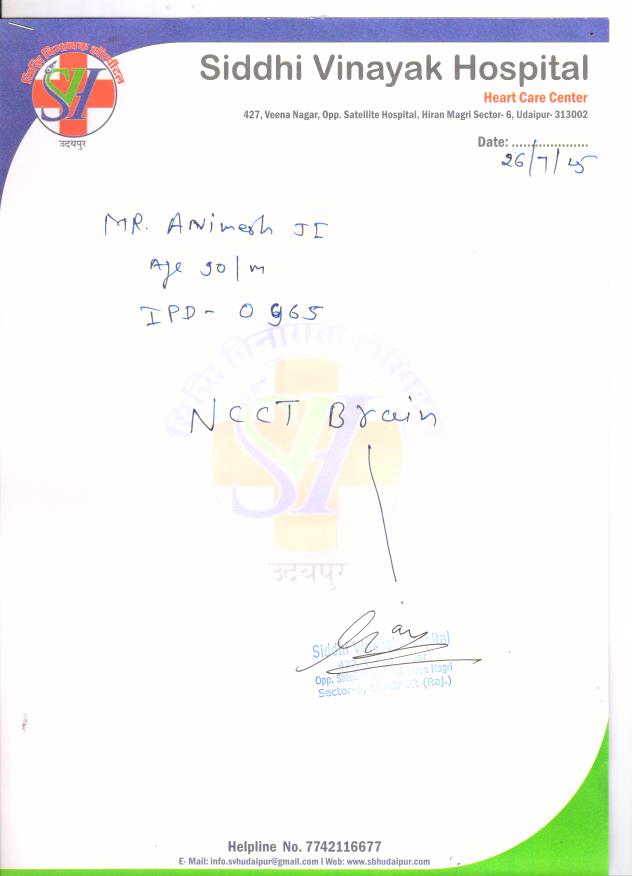 सिद्धि विनायक हॉस्पीटल
SVH
उदयपुर
Siddhi Vinayak Hospital
Heart Care Center
427, Veena Nagar, Opp. Satellite Hospital, Hiran Magri Sector- 6, Udaipur- 313002
Date: ....................
26/7/15
MR. Animesh JI
Age 30/m
IPD- 0965
सिद्धि विनायक हॉस्पिटल
NCCT Brain
SVH
उदयपुर
Siddhi Hospital
Opp. Hiran Magri
Sector-6, UDAIPUR (Raj.)
Helpline No. 7742116677
E- Mail: info.svhudaipur@gmail.com I Web: www.sbhudaipur.com